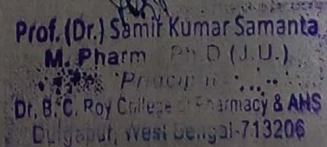 Prof. (Dr.) Samir Kumar Samanta
M. Pharm Ph.D (J.U.)
Principal
Dr. B. C. Roy College of Pharmacy & AHS
Durgapur, West Bengal-713206